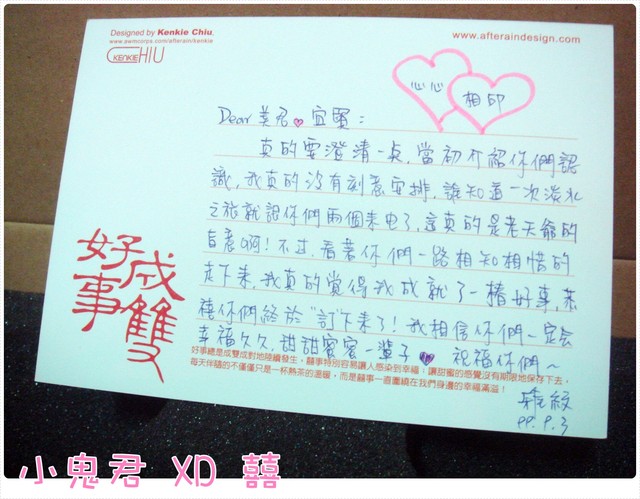 Designed by Kenkie Chiu.
www.pwmcorps.com/afterain/kenkie
KENKIE CHIU
www.afteraindesign.com
心心 相印
Dear 美君♥宜蜜:
真的要澄清一點,當初介紹你們認
識,我真的沒有刻意安排,誰知道一次淡水
之旅就認你們兩個來电了,這真的是老天爺的
旨意啊!不过,看著你們一路相知相惜的
走下來,我真的覺得我成就了一樁好事,恭
禧你們終於"訂"下來了!我相信你們一定会
幸福久久,甜甜蜜蜜一輩子♥ 祝福你們~
好事成雙
好事總是成雙成對地陸續發生,囍事特別容易讓人感染到幸福;讓甜蜜的感覺沒有期限地保存下去,
每天伴隨的不僅僅只是一杯熱茶的溫暖,而是囍事一直圍繞在我們身邊的幸福滿溢!
紋
99.9.3
小鬼君 XD 囍